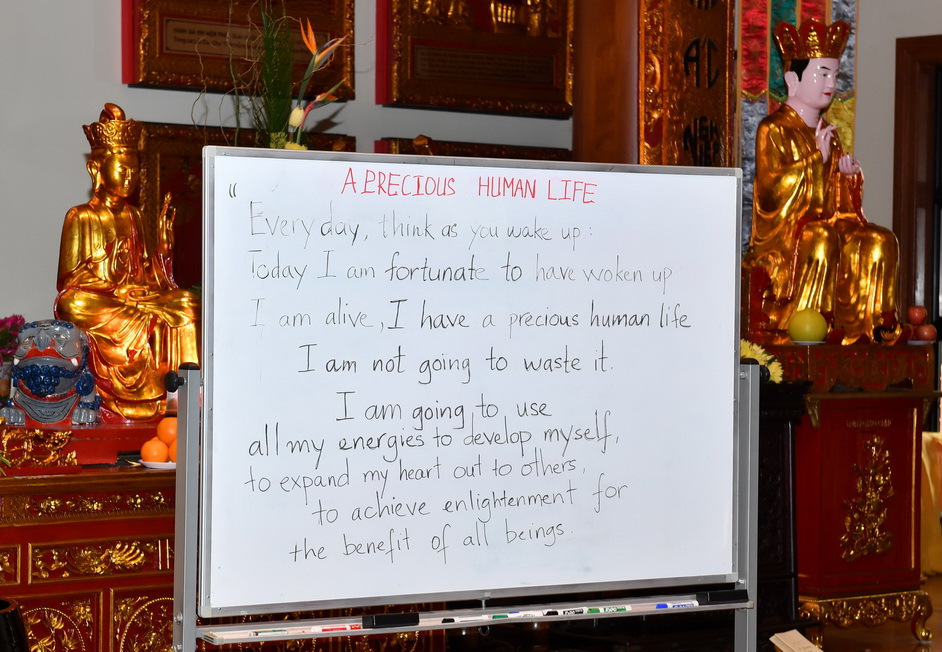 “ A PRECIOUS HUMAN LIFE
Every day, think as you wake up:
Today I am fortunate to have woken up
I am alive, I have a precious human life
I am not going to waste it.
I am going to use
all my energies to develop myself,
to expand my heart out to others,
to achieve enlightenment for
the benefit of all beings.